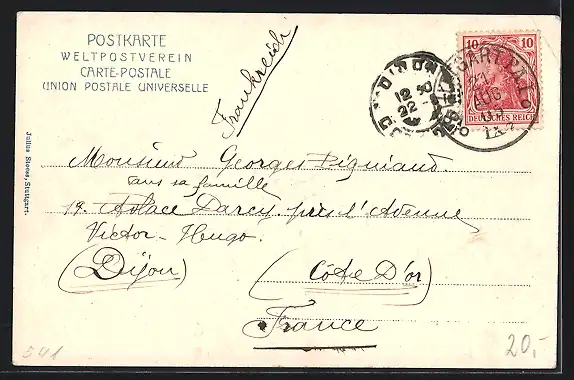 POSTKARTE
WELTPOSTVEREIN
CARTE-POSTALE
UNION POSTALE UNIVERSELLE
Frankreich
10 10
DEUTSCHES REICH
21
AUG
12
22
DIJON
Julius Stoess, Stuttgart.
Monsieur Georges
dans sa famille
19. Place Darcy. près l'Avenue
Victor-Hugo.
(Dijon) (Côte D'or)
France
541
20,-